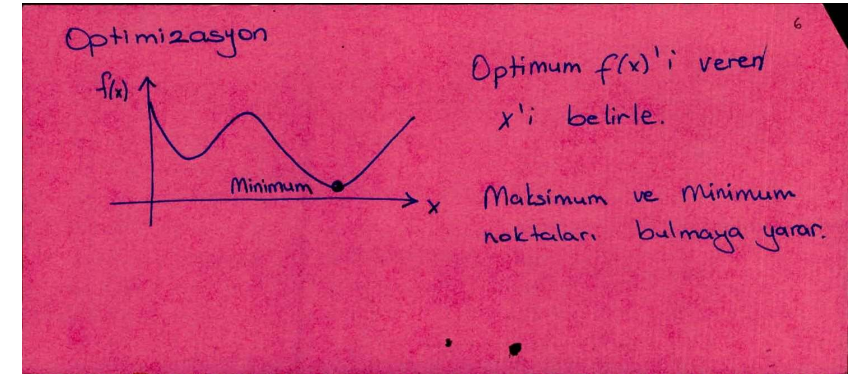 6
Optimizasyon
f(x)
Minimum
x
Optimum f(x)'i veren
x'i belirle.
Maksimum ve minimum
noktaları bulmaya yarar.